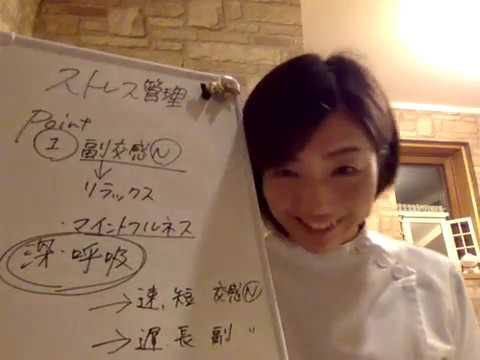 ストレス管理
Point
① 副交感Ⓝ
↓
リラックス
・マインドフルネス
深・呼吸
→速、短 交感Ⓝ
→遅 長 副 〃